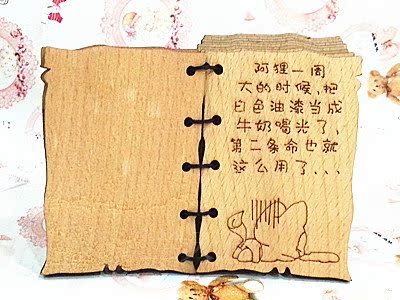 阿狸一周
大的时候,把
白色油漆当成
牛奶喝光了,
第二条命也就
这么用了...